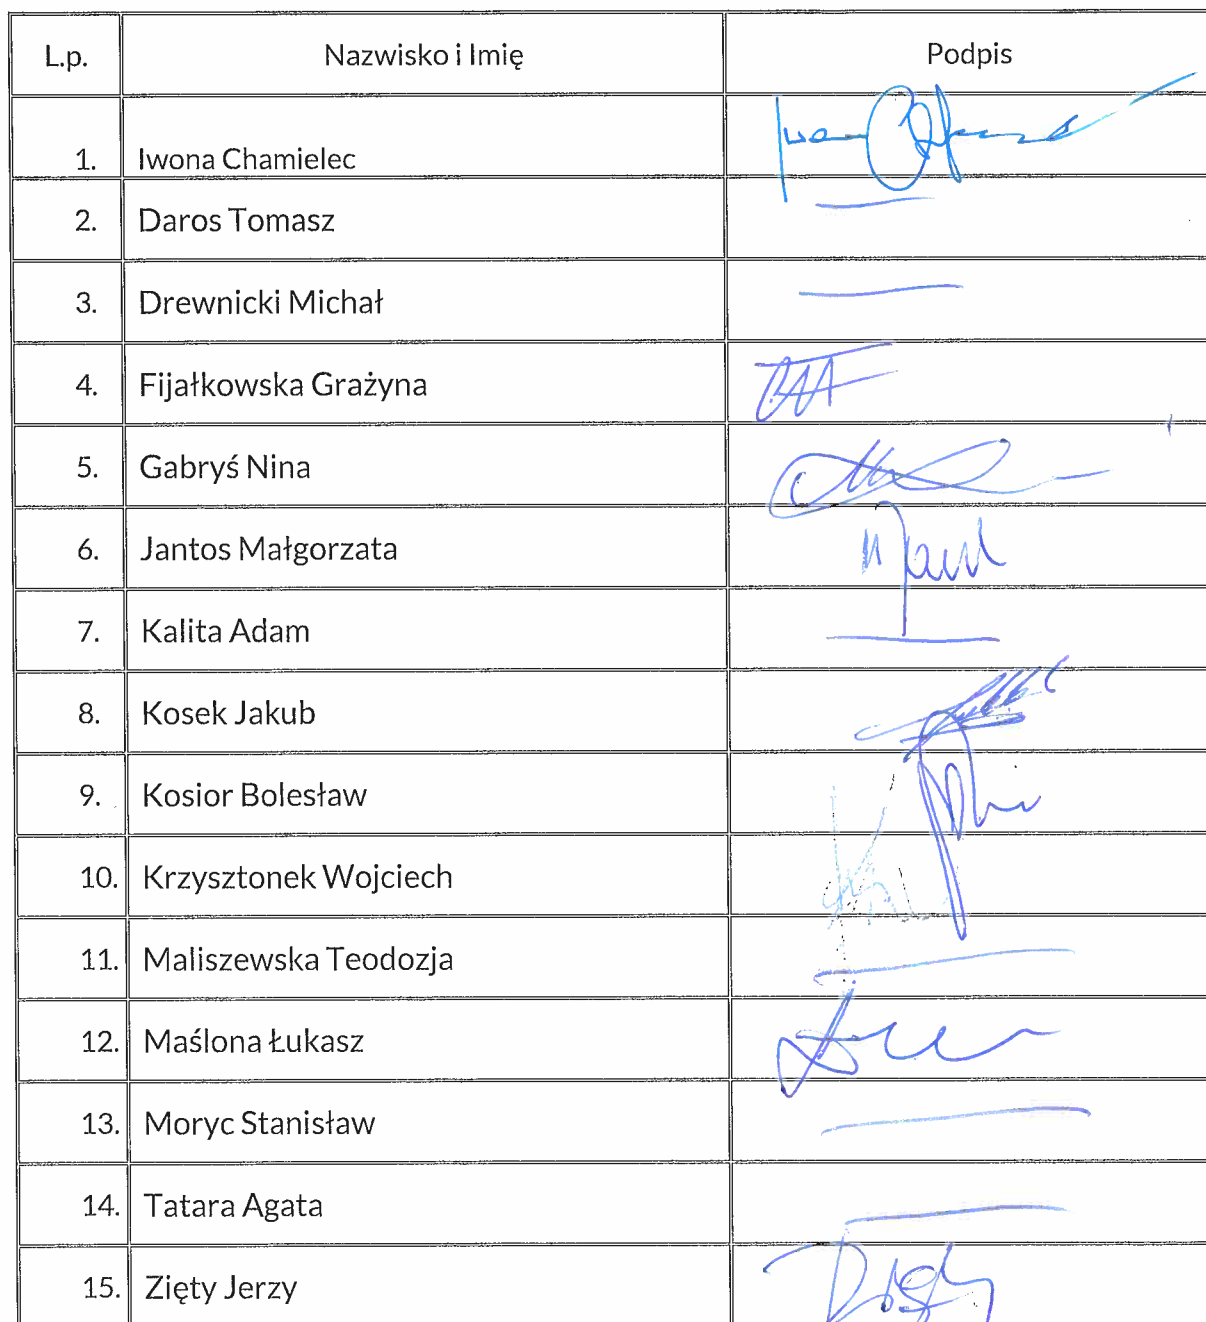 L.p. Nazwisko i Imię Podpis
1. Iwona Chamielec
2. Daros Tomasz
3. Drewnicki Michał
4. Fijałkowska Grażyna
5. Gabryś Nina
6. Jantos Małgorzata
7. Kalita Adam
8. Kosek Jakub
9. Kosior Bolesław
10. Krzysztonek Wojciech
11. Maliszewska Teodozja
12. Maślona Łukasz
13. Moryc Stanisław
14. Tatara Agata
15. Zięty Jerzy